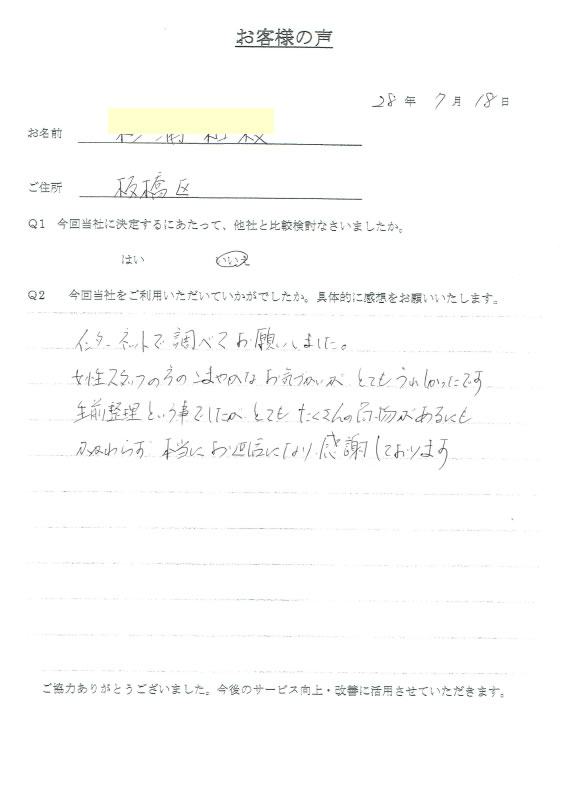 お客様の声
28年 7月 18日
お名前
ご住所 板橋区
Q1 今回当社に決定するにあたって、他社と比較検討なさいましたか。
はい いいえ
Q2 今回当社をご利用いただいていかがでしたか。具体的に感想をお願いいたします。
インターネットで調べてお願いしました。
女性スタッフの方のこまやかなお気づかいが とてもうれしかったです
生前整理という事でしたが とても たくさんの荷物があるにも
かかわらず 本当にお世話になり 感謝しております
ご協力ありがとうございました。今後のサービス向上・改善に活用させていただきます。